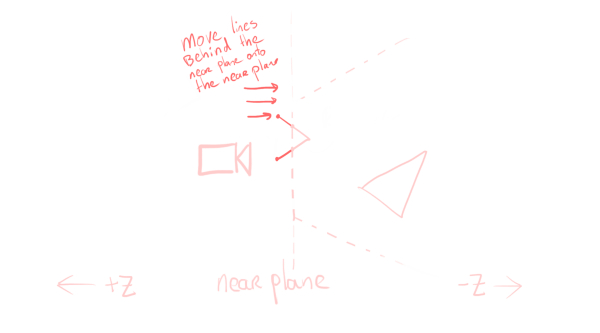 Move lines
Behind the
near plane onto
the near plane
+Z
near plane
-Z